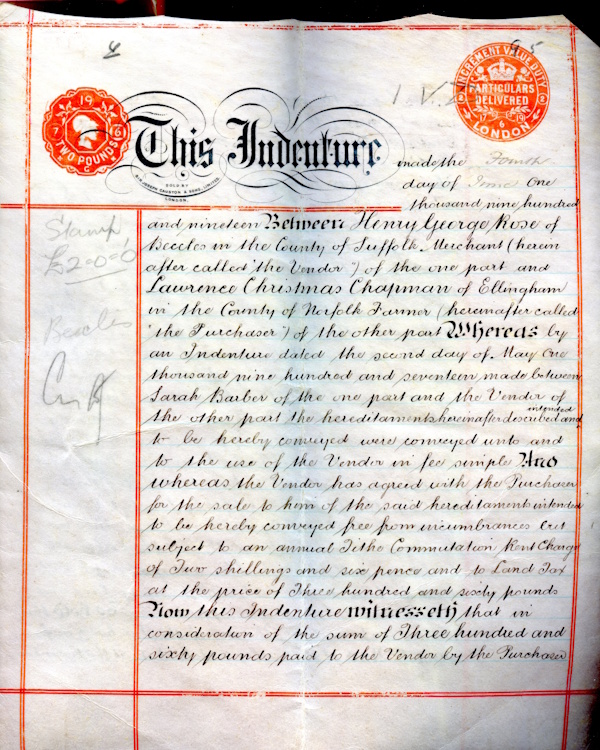 4
95
1 V.
INCREMENT VALUE DUTY
PARTICULARS
DELIVERED
17 6 19
LONDON
19
7 6
TWO POUNDS
This Indenture made the Fourth
SOLD BY
SIR JOSEPH CAUSTON & SONS, LIMITED,
LONDON.
day of June One
thousand nine hundred
and nineteen Between Henry George Rose of
Beccles in the County of Suffolk Merchant (herein
after called "the Vendor") of the one part and
Lawrence Christmas Chapman of Ellingham
in the County of Norfolk Farmer (hereinafter called
"the Purchaser") of the other part Whereas by
an Indenture dated the second day of May One
thousand nine hundred and seventeen made between
Sarah Barber of the one part and the Vendor of
the other part the hereditaments hereinafter described and intended
to be hereby conveyed were conveyed unto and
to the use of the Vendor in fee simple And
whereas the Vendor has agreed with the Purchaser
for the sale to him of the said hereditaments intended
to be hereby conveyed free from incumbrances but
subject to an annual Tithe Commutation Rent Charge
of Two shillings and six pence and to Land Tax
at the price of Three hundred and sixty pounds
Now this Indenture witnesseth that in
consideration of the sum of Three hundred and
sixty pounds paid to the Vendor by the Purchaser
Stamp
£2-0-0
Beccles